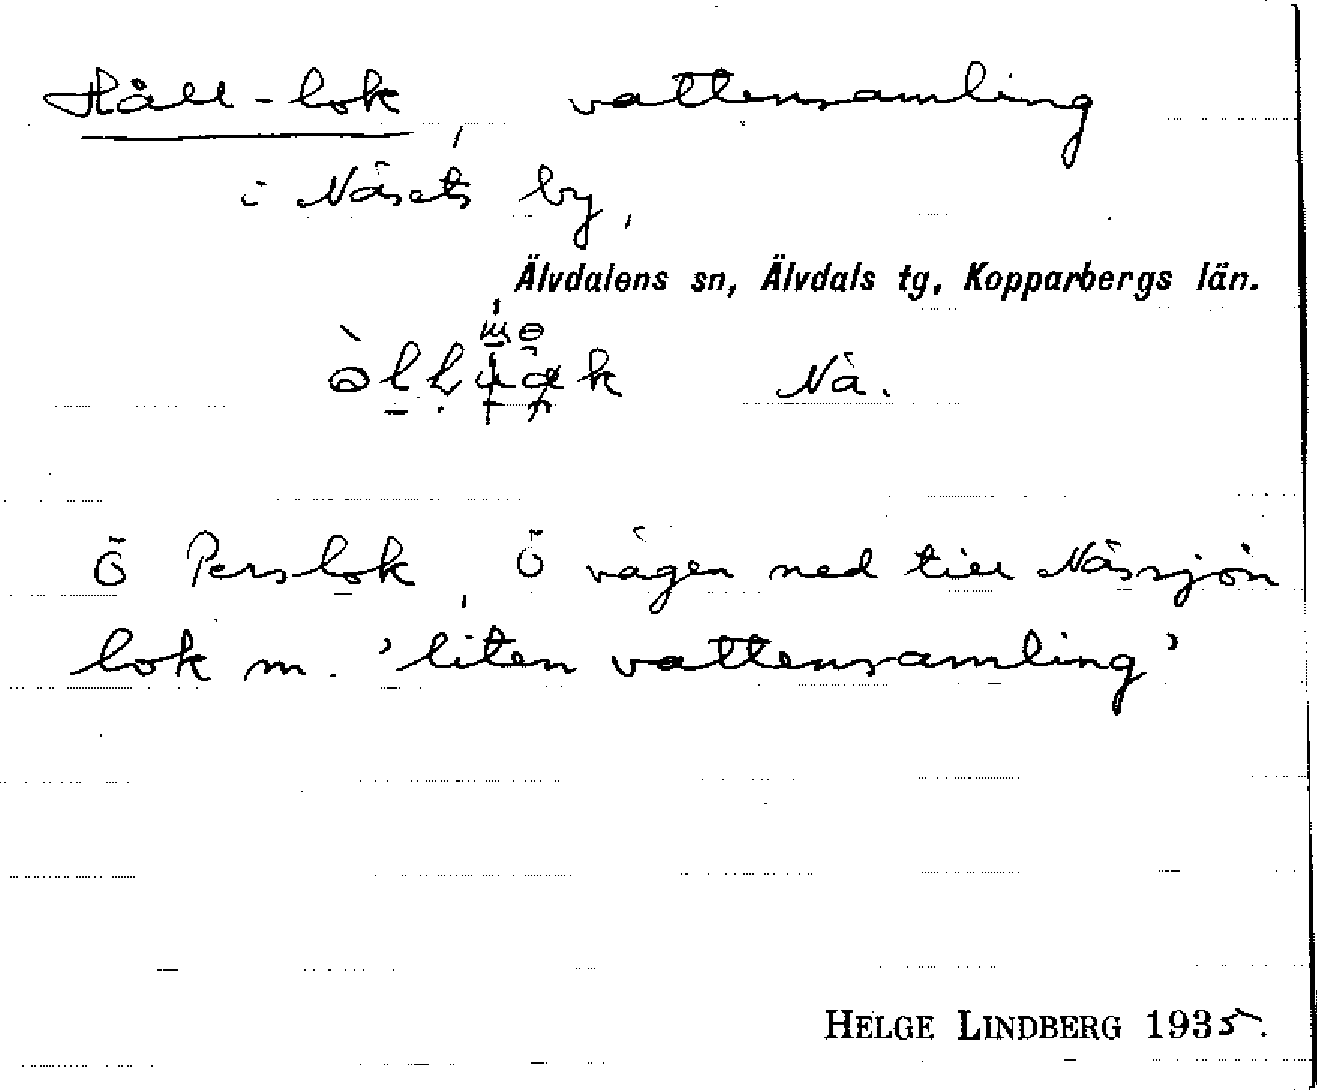 Håll-lok vattensamling
i Näsets by,
Älvdalens sn, Älvdals tg, Kopparbergs län.
Nä.
Ö Perslok, Ö vägen ned till Nässjön
lok m. 'liten vattensamling'
HELGE LINDBERG 1935.